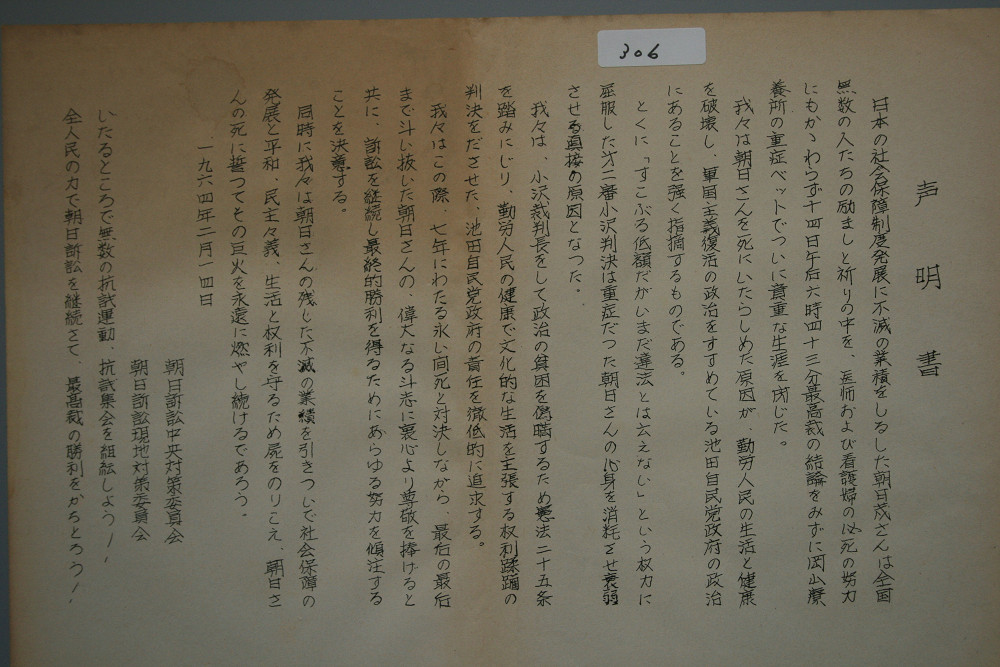 306
声明書
日本の社会保障制度発展に不滅の業績をしるした朝日茂さんは全国
無数の人たちの励ましと祈りの中を、医師および看護婦の必死の努力
にもかゝわらず十四日午后六時四十三分最高裁の結論をみずに岡山療
養所の重症ベットでついに貴重な生涯を閉じた。
我々は朝日さんを死にいたらしめた原因が、勤労人民の生活と健康
を破壊し、軍国主義復活の政治をすすめている池田自民党政府の政治
にあることを強く指摘するものである。
とくに「すこぶる低額だがいまだ違法とは云えない」という权力に
屈服した才二審小沢判決は重症だった朝日さんの心身を消耗させ衰弱
させる直接の原因となった。
我々は、小沢裁判長をして政治の貧困を偽瞞するため憲法二十五条
を踏みにじり、勤労人民の健康で文化的な生活を主張する权利蹂躙の
判決をださせた、池田自民党政府の責任を徹低的に追求する。
我々はこの際、七年にわたる永い间死と対決しながら、最后の最后
まで斗い抜いた朝日さんの、偉大なる斗志に衷心より尊敬を捧げると
共に、訴訟を継続し最終的勝利を得るためにあらゆる努力を傾注する
ことを決意する。
同時に我々は朝日さんの残した不滅の業績を引きついで社会保障の
発展と平和、民主々義、生活と权利を守るため屍をのりこえ、朝日さ
んの死に誓つてその巨火を永遠に燃やし続けるであろう。
一九六四年二月一四日
朝日訴訟中央対策委員会
朝日訴訟現地対策委員会
いたるところで無数の抗議運動、抗議集会を組織しよう！
全人民の力で朝日訴訟を継続させ、最高裁の勝利をかちとろう！